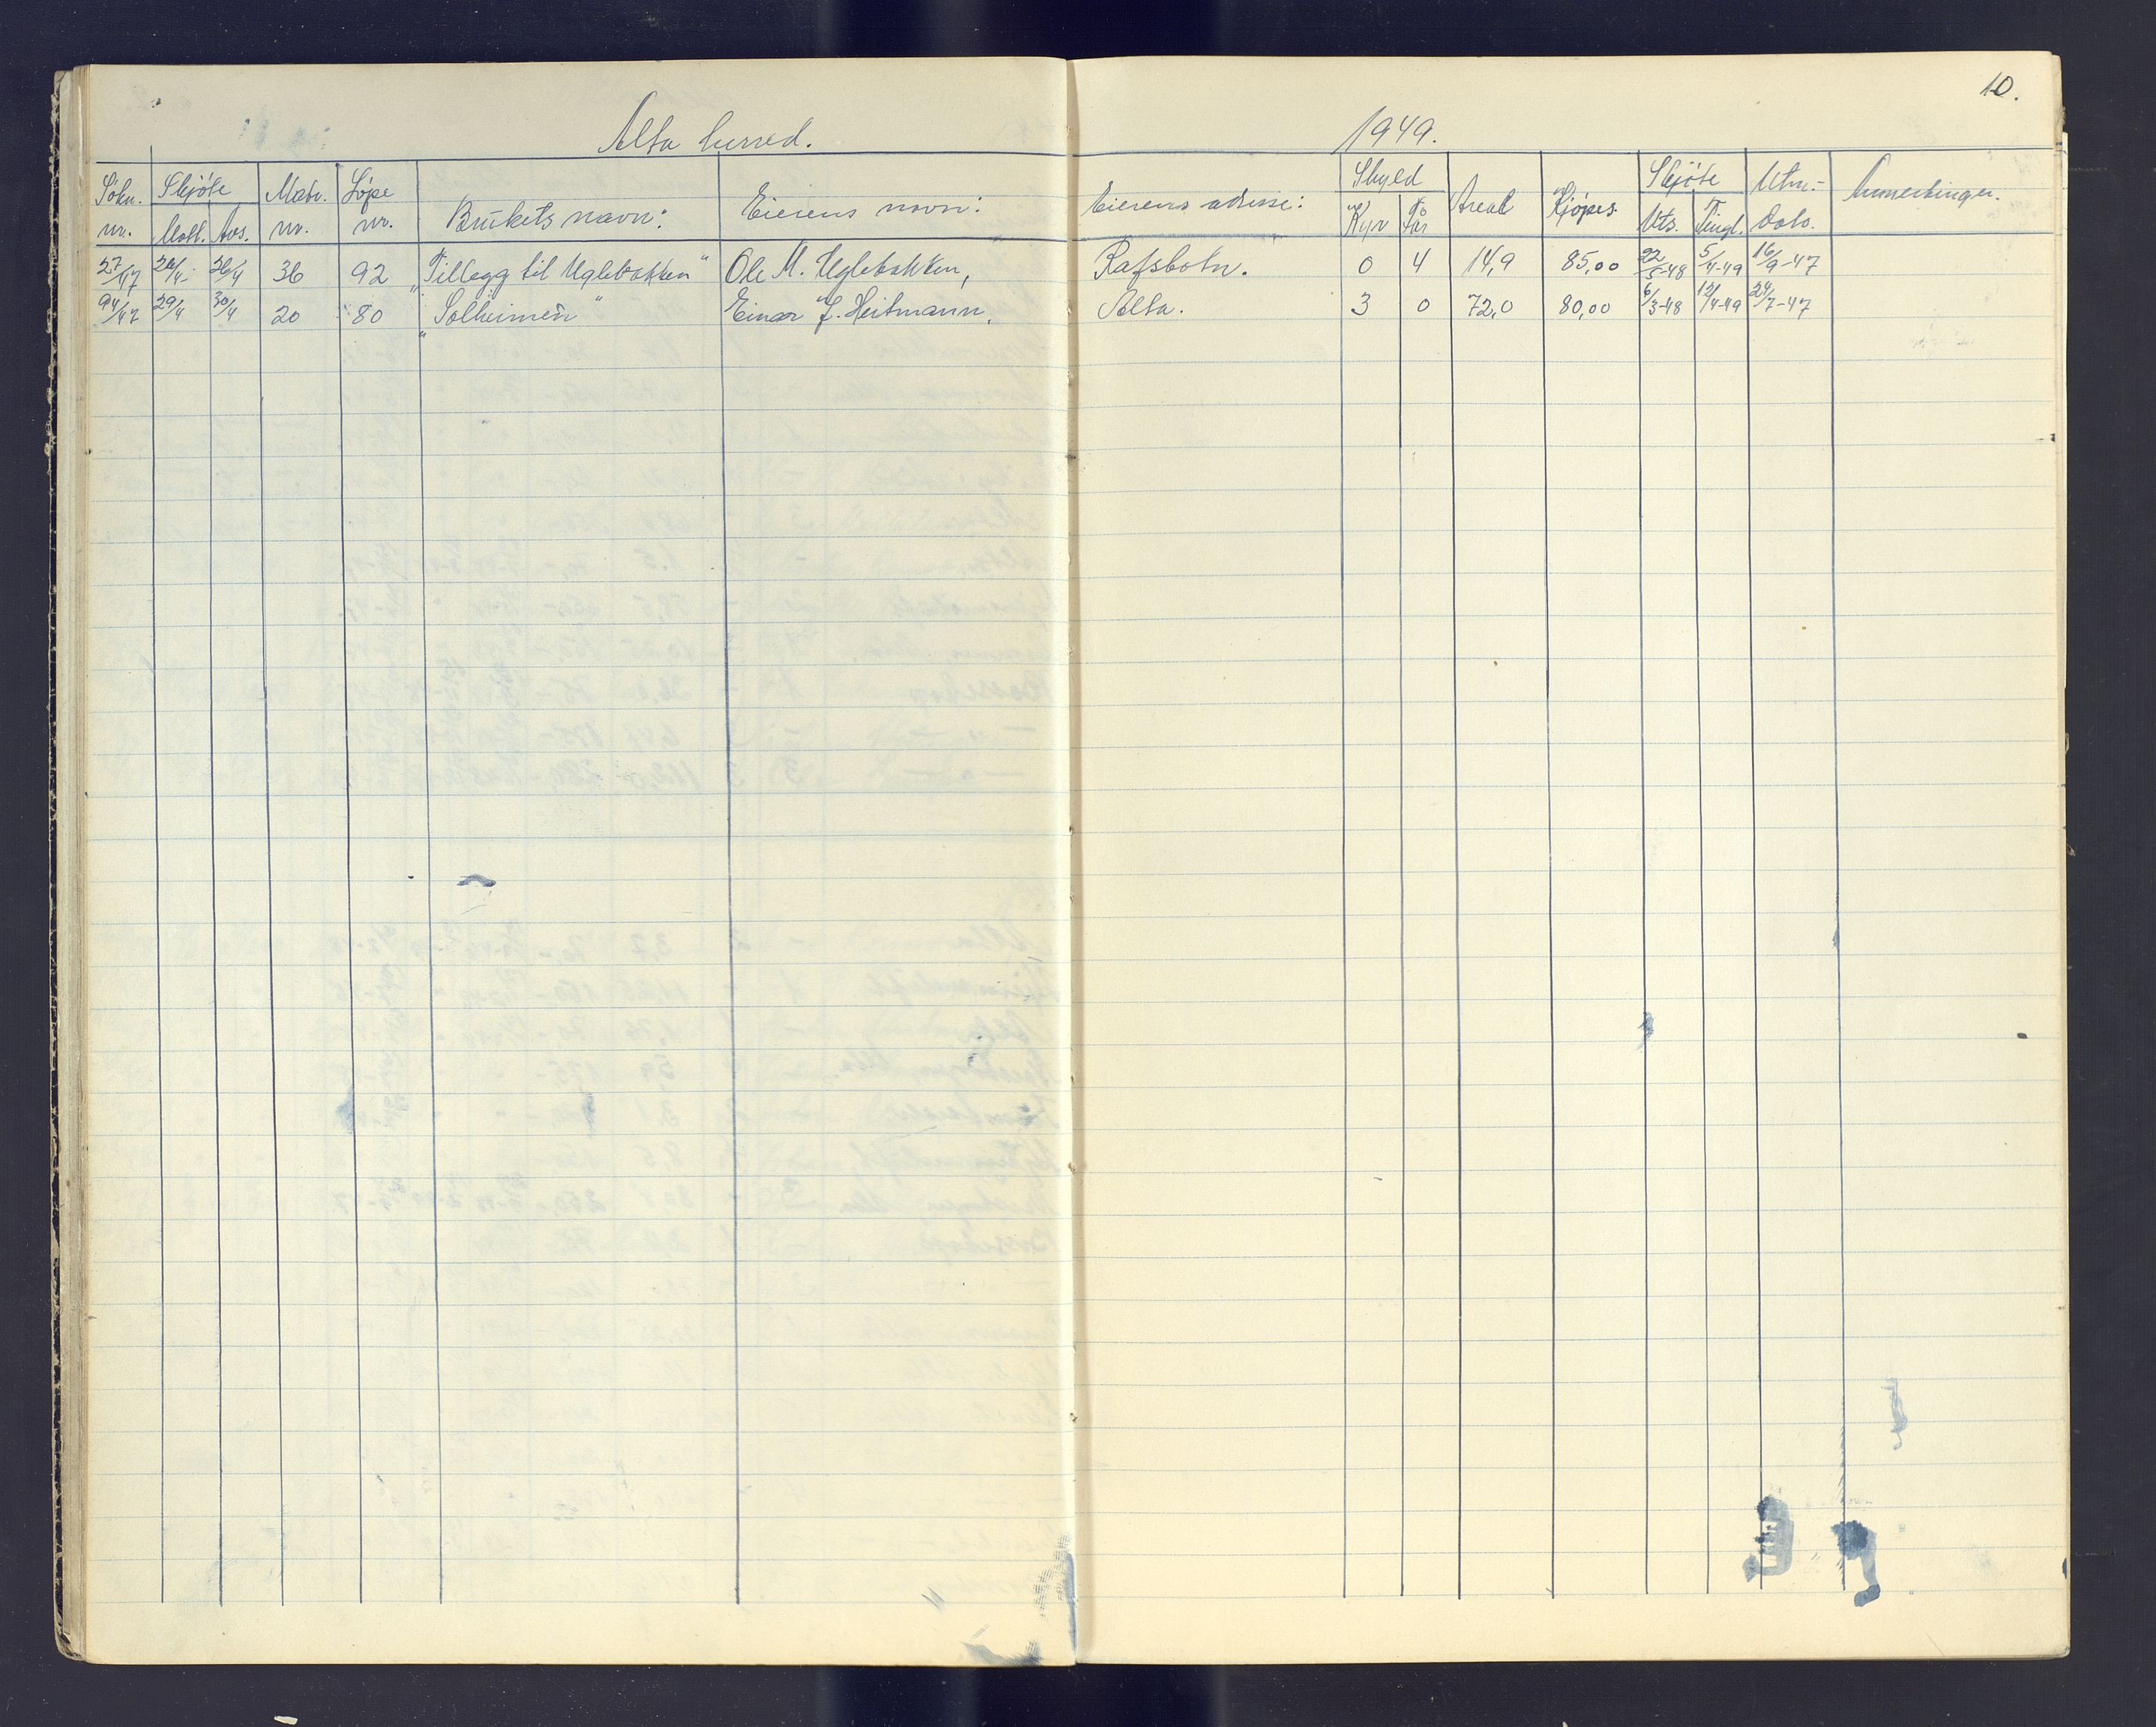 10.
Alta herred. 1949.
Søkn. nr. Skjøte Mott. Avs. Matr. nr. Løpe nr. Brukets navn: Eierens navn: Eierens adresse: Skyld Kyr Får Areal Kjøpes. Skjøte Uts. Tingl. Utm.- Dato. Anmerkinger.
27/47 26/4 36 92 "Tillegg til Uglebakken" Ole M. Uglebakken, Rafsbotn. 0 4 14,9 85,00 22/5-48 5/4-49 16/9-47
94/47 29/4 30/4 20 80 "Solheimen" Einar f. Heitmann, Alta. 3 0 72,0 80,00 6/3-48 12/4-49 24/7-47